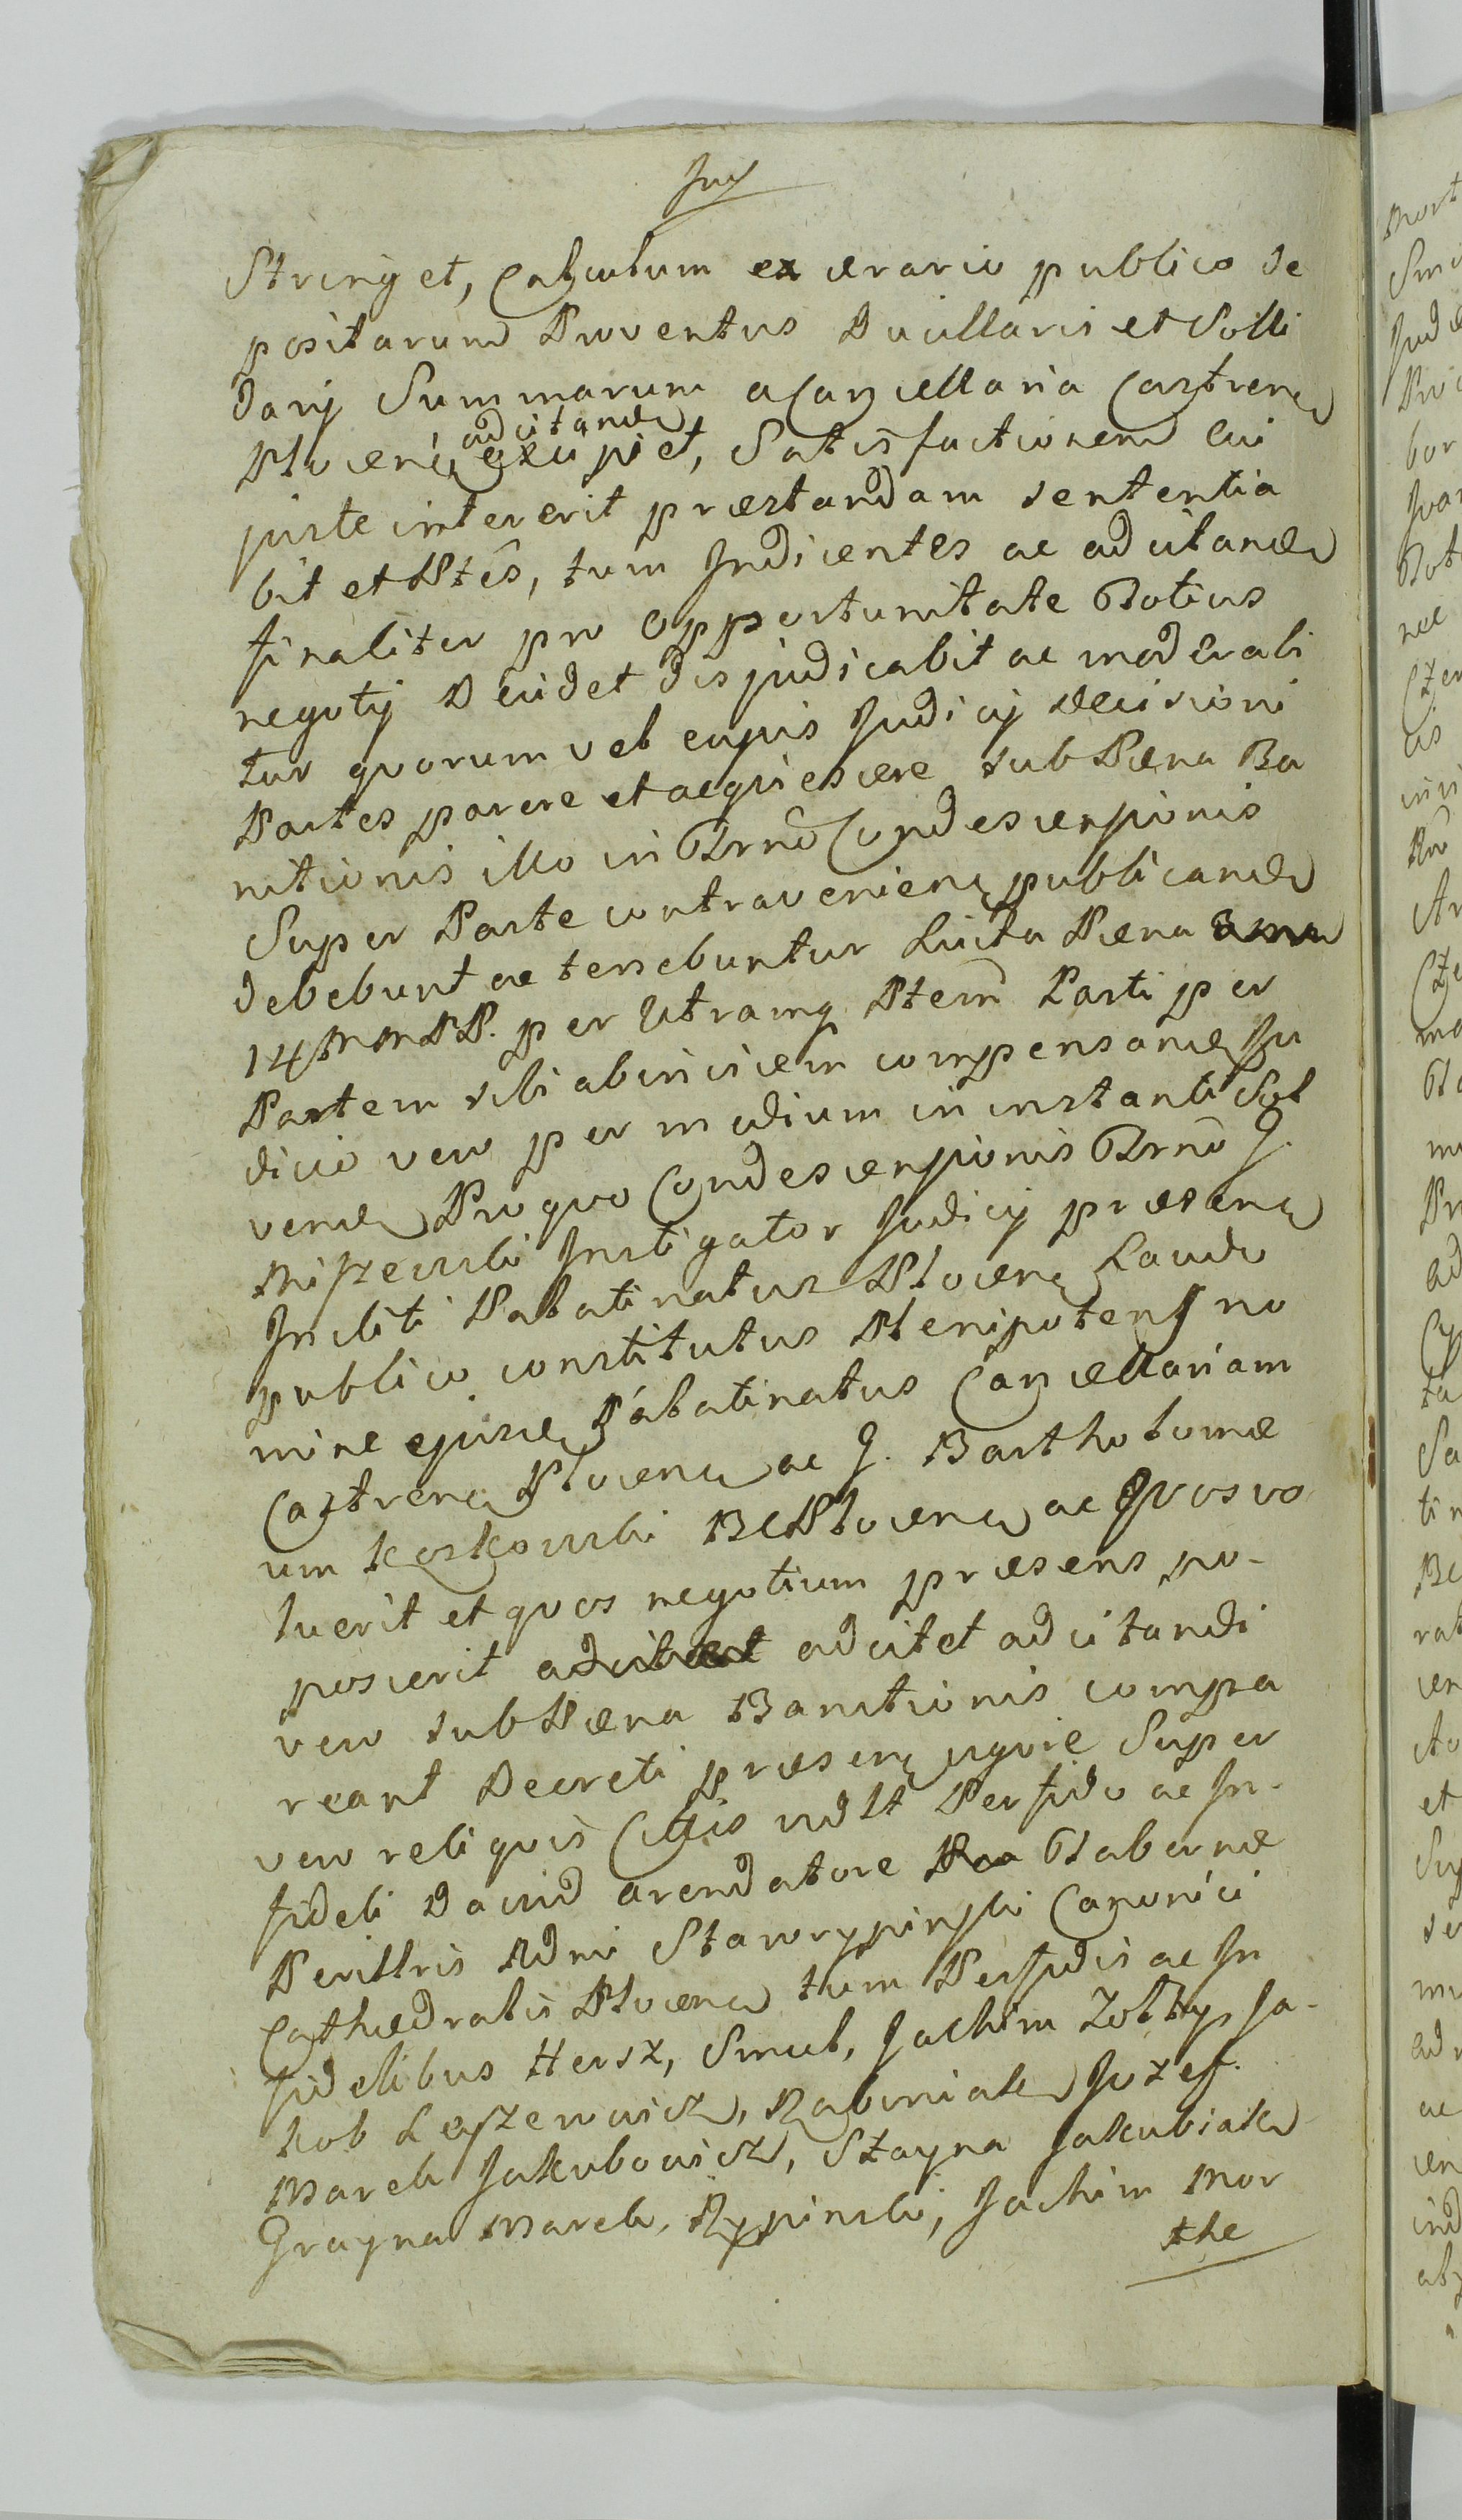 Stringet, Calculum ex ærario publico de
positarum Proventus Ducillaris et Solli
darij Summarum a Cancellaria Castren
Plocen adcitan excipiet, Satisfactionem cui
juste intererit præstandam sententia
bit et Ptes, tum Indicentes ac adcitand
finaliter pro opportunitate Totius
negotij Decidet dijudicabit ac moderabi
tur quorum vel cujus Judicij decisioni
Partes parere et acquiescere sub Pæna Ba
nitionis illo in Trno Condescensionis
Super Parte contravenien publicand
debebunt ac tenebuntur Luita Pæna
14 MMPP. per Utramq Ptem Parti per
Partem sibi abinvicem compensand Ju
dicio vero per medium in instanti Sol
vend Pro quo Condescensionis Trno G.
Miszewski Instigator Judicij præsen
Incliti Palatinatus Plocen Laudo
publico constitutus Plenipotens no
mine ejusd Palatinatus Cancellariam
Castren Plocen ac G. Bartholomæ
um Koskowski BCPlocen ac Quos vo
luerit et quos negotium præsens po-
poscerit adcitet adcitandi
vero sub Pæna Banitionis compa
reant Decreti præsen vigore Super
vero reliquis Cttis udlt Perfido ac In-
fideli Dawid arendatore Tabernæ
Perillris Rdmi Starorypinski Canonici
Cathedralis Plocen tum Perfidis ac In
fidelibus Hersz, Smul, Jachim Zołty, Ja-
kob Leyzerowicz, Rabiniak Jozef.
Marek Jakubowicz, Szayna Jakubiak
Grayna Marek, Rypinski, Jachim Mor
the